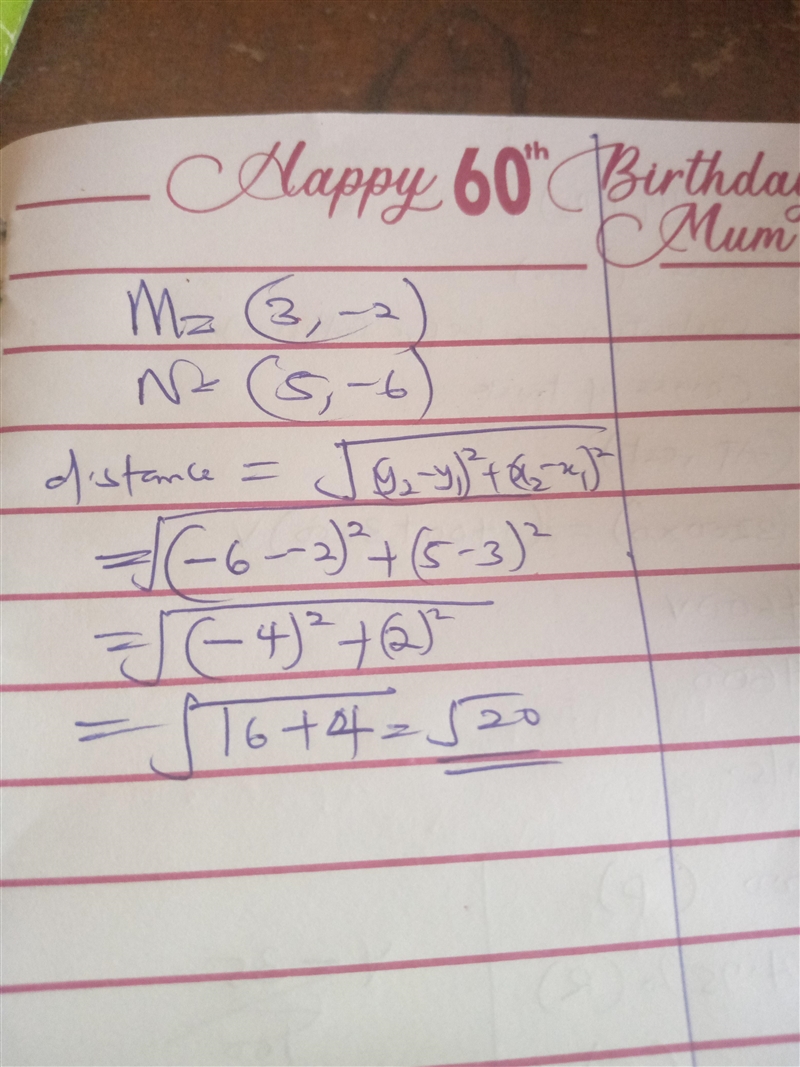 Happy 60th Birthday
Mum
M= (3, -2)
N= (5, -6)
distance = √(y₂-y₁)²+(x₂-x₁)²
=√(-6 - -2)²+(5-3)²
=√(-4)²+(2)²
=√16+4 = √20